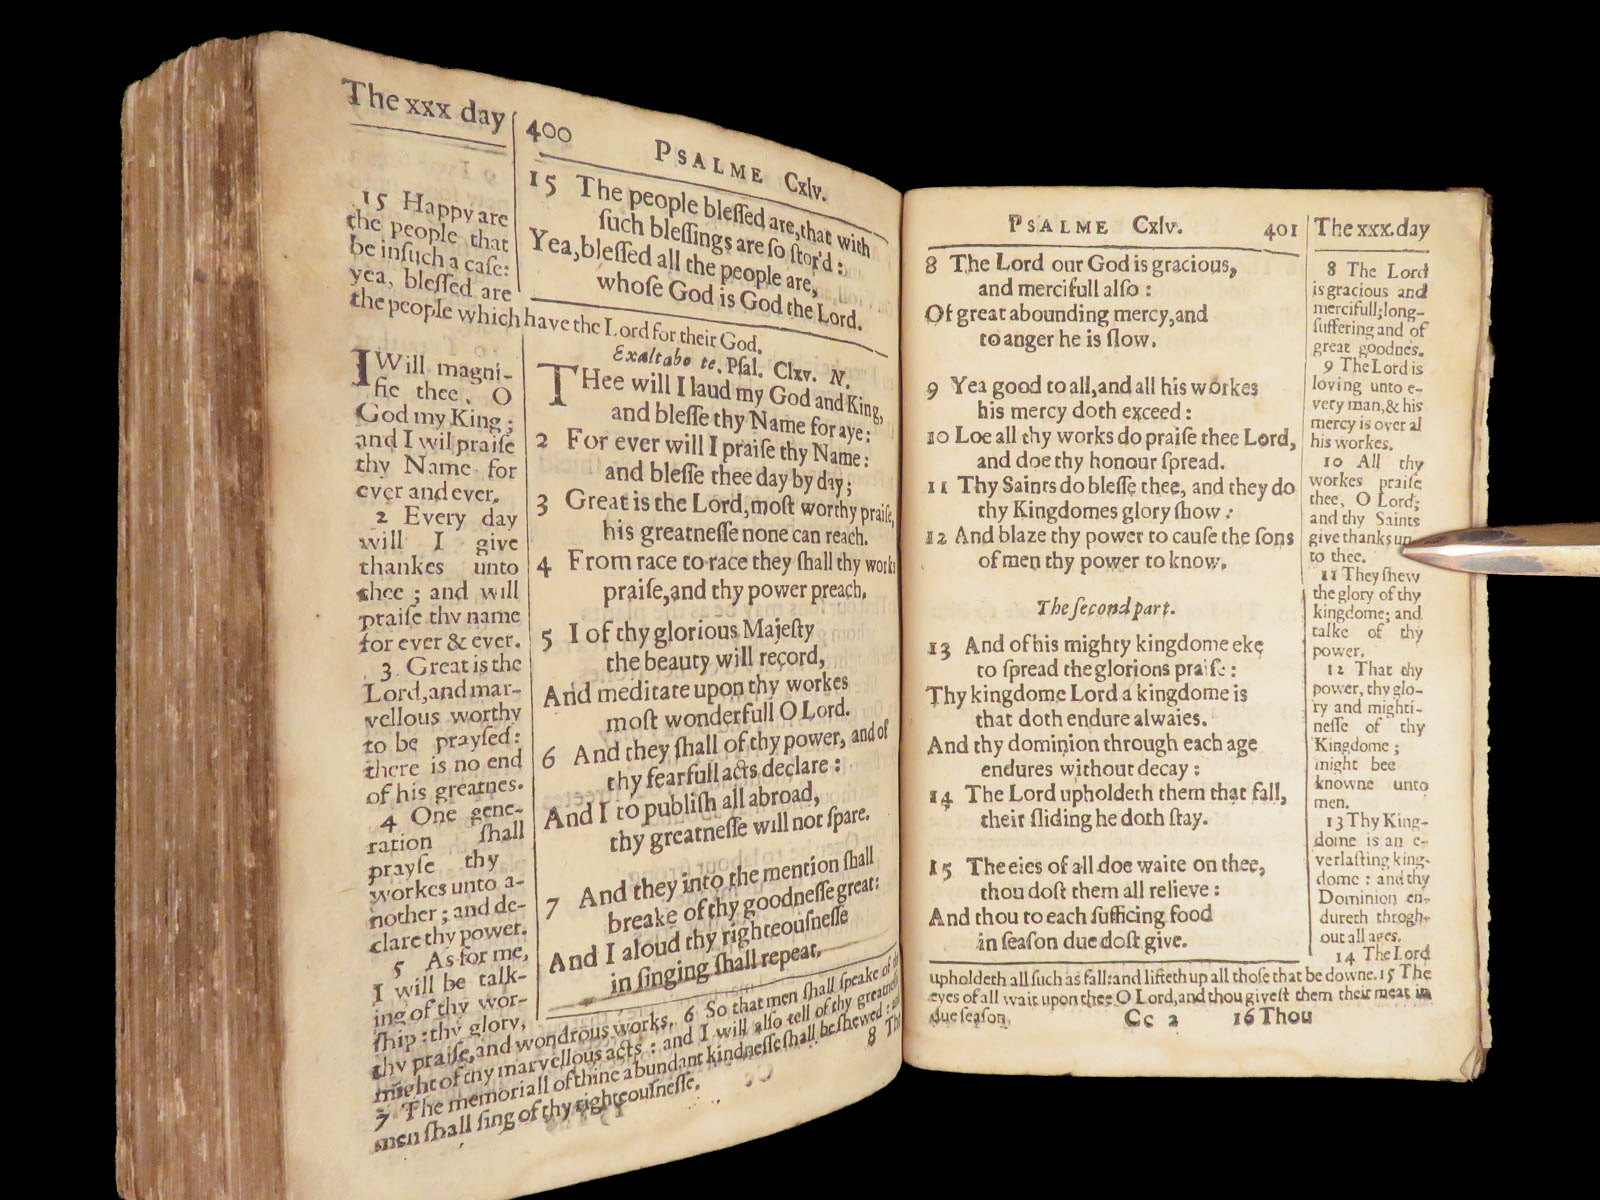 The xxx day
400 PSALME Cxlv.
15 Happy are
the people that
be in such a case:
yea, blessed are
the people which have the Lord for their God.
15 The people blessed are, that with
such blessings are so stor'd:
Yea, blessed all the people are,
whose God is God the Lord.
I Will magni-
fie thee, O
God my King;
and I wil praise
thy Name for
ever and ever.
2 Every day
will I give
thankes unto
thee; and will
praise thy name
for ever & ever.
3 Great is the
Lord, and mar-
vellous worthy
to be praysed:
there is no end
of his greatnes.
4 One gene-
ration shall
prayse thy
workes unto a-
nother; and de-
clare thy power.
5 As for me,
I will be talk-
ing of thy wor-
ship: thy glory,
thy praise, and wondrous works. 6 So that men shall speake of the
might of thy marvellous acts: and I will also tell of thy greatness
7 The memoriall of thine abundant kindnesse shall be shewed: and
men shall sing of thy righteousnesse.
8 The
Exaltabo te. Psal. Clxv. N.
THee will I laud my God and King,
and blesse thy Name for aye:
2 For ever will I praise thy Name:
and blesse thee day by day;
3 Great is the Lord, most worthy praise,
his greatnesse none can reach.
4 From race to race they shall thy works
praise, and thy power preach.
5 I of thy glorious Majesty
the beauty will record,
And meditate upon thy workes
most wonderfull O Lord.
6 And they shall of thy power, and of
thy fearfull acts declare:
And I to publish all abroad,
thy greatnesse will not spare.
7 And they into the mention shall
breake of thy goodnesse great:
And I aloud thy righteousnesse
in singing shall repeat.
PSALME Cxlv. 401
The xxx. day
8 The Lord our God is gracious,
and mercifull also:
Of great abounding mercy, and
to anger he is slow.
9 Yea good to all, and all his workes
his mercy doth exceed:
10 Loe all thy works do praise thee Lord,
and doe thy honour spread.
11 Thy Saints do blesse thee, and they do
thy Kingdomes glory show:
12 And blaze thy power to cause the sons
of men thy power to know.
The second part.
13 And of his mighty kingdome eke
to spread the glorions praise:
Thy kingdome Lord a kingdome is
that doth endure alwaies.
And thy dominion through each age
endures without decay:
14 The Lord upholdeth them that fall,
their sliding he doth stay.
15 The eies of all doe waite on thee,
thou dost them all relieve:
And thou to each sufficing food
in season due dost give.
8 The Lord
is gracious and
mercifull; long-
suffering and of
great goodnes.
9 The Lord is
loving unto e-
very man, & his
mercy is over al
his workes.
10 All thy
workes praise
thee, O Lord;
and thy Saints
give thanks un
to thee.
11 They shew
the glory of thy
kingdome; and
talke of thy
power.
12 That thy
power, thy glo-
ry and mighti-
nesse of thy
Kingdome;
might bee
knowne unto
men.
13 Thy King-
dome is an e-
verlasting king-
dome: and thy
Dominion en-
dureth throgh-
out all ages.
14 The Lord
upholdeth all such as fall: and lifteth up all those that be downe. 15 The
eyes of all wait upon thee O Lord, and thou givest them their meat in
due season,
Cc 2 16 Thou